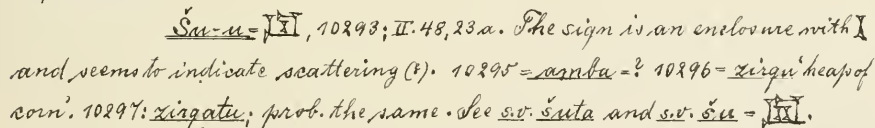 Šu-u = , 10293; II. 48, 23 a. The sign is an enclosure with
and seems to indicate scattering (?). 10295 = amba = ? 10296 = zirqu 'heap of
corn'. 10297: zirqatu; prob. the same. See s.v. šuta and s.v. šu = .